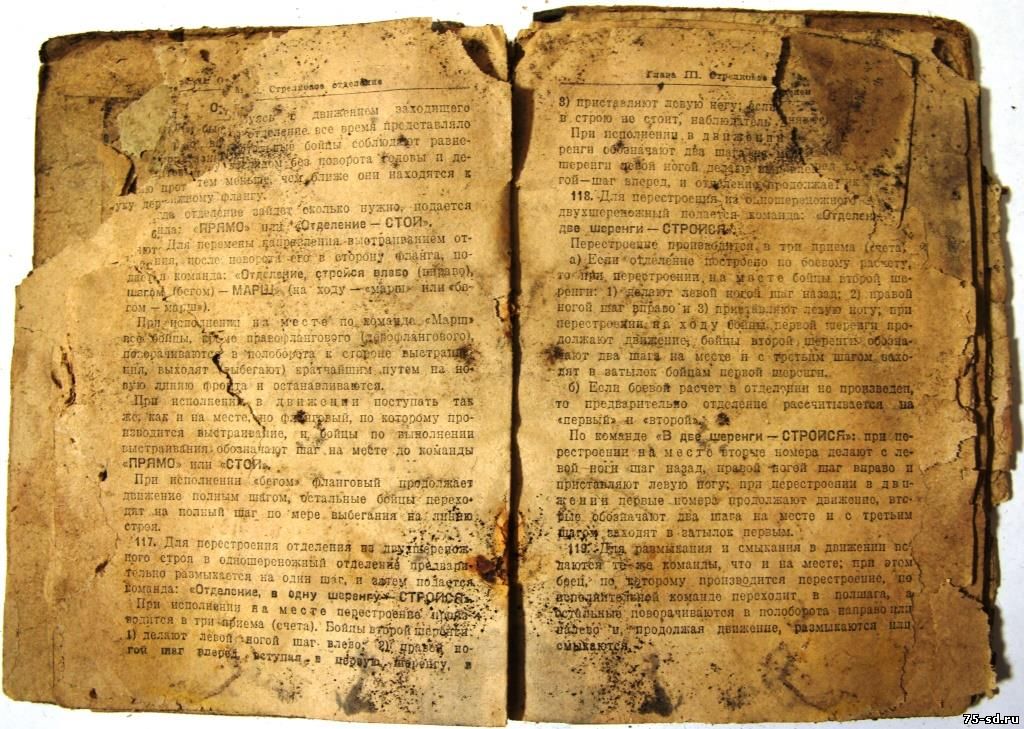 Стрелковое отделение
с движением заходящего
отделение все время представляло
бойцы соблюдают равне-
без поворота головы и де-
тем меньше, чем ближе они находятся к
державному флангу.
отделение зайдет сколько нужно, подается
«ПРЯМО» или «Отделение — СТОЙ».
Для перемены направления выстраиванием от-
после поворота его в сторону фланга, по-
команда: «Отделение, стройся влево (вправо),
шагом (бегом) — МАРШ» (на ходу — «марш» или «бе-
гом — марш»).
При исполнении на месте по команде «Марш»
все бойцы, кроме правофлангового (левофлангового),
поворачиваются в полоборота к стороне выстраива-
ния, выходят (выбегают) кратчайшим путем на но-
вую линию фронта и останавливаются.
При исполнении в движении поступать так
же, как и на месте, но фланговый, по которому про-
изводится выстраивание, и бойцы по выполнении
выстраивания обозначают шаг на месте до команды
«ПРЯМО» или «СТОЙ».
При исполнении «бегом» фланговый продолжает
движение полным шагом, остальные бойцы перехо-
дят на полный шаг по мере выбегания на линию
строя.
117. Для перестроения отделения из двухшеренож-
ного строя в одношереножный отделение предвари-
тельно размыкается на один шаг, и затем подается
команда: «Отделение, в одну шеренгу — СТРОЙСЯ».
При исполнении на месте перестроение произ-
водится в три приема (счета). Бойцы второй шеренги:
1) делают левой ногой шаг влево; 2) правой но-
гой шаг вперед, вступая в первую шеренгу, и
Глава III. Стрелковое
3) приставляют левую ногу; если
в строю не стоит, наблюдатель
При исполнении в движении
ренги обозначают два шага на
шеренги левой ногой делают шаг
гой—шаг вперед, и отделение продолжает
118. Для перестроения из одношереножного
двухшереножный подается команда: «Отделение,
две шеренги — СТРОЙСЯ».
Перестроение производится в три приема (счета):
а) Если отделение построено по боевому расчету,
то при перестроении на месте бойцы второй ше-
ренги: 1) делают левой ногой шаг назад; 2) правой
ногой шаг вправо и 3) приставляют левую ногу; при
перестроении на ходу бойцы первой шеренги про-
должают движение, бойцы второй шеренги обозна-
чают два шага на месте и с третьим шагом захо-
дят в затылок бойцам первой шеренги.
б) Если боевой расчет в отделении не произведен,
то предварительно отделение рассчитывается на
«первый» и «второй».
По команде «В две шеренги — СТРОЙСЯ»: при пе-
рестроении на месте вторые номера делают с ле-
вой ноги шаг назад, правой ногой шаг вправо и
приставляют левую ногу; при перестроении в дви-
жении первые номера продолжают движение, вто-
рые обозначают два шага на месте и с третьим
шагом заходят в затылок первым.
119. Для размыкания и смыкания в движении по-
даются те же команды, что и на месте; при этом
боец, по которому производится перестроение, по
исполнительной команде переходит в полшага, а
остальные поворачиваются в полоборота направо или
налево и, продолжая движение, размыкаются или
смыкаются.
75-sd.ru